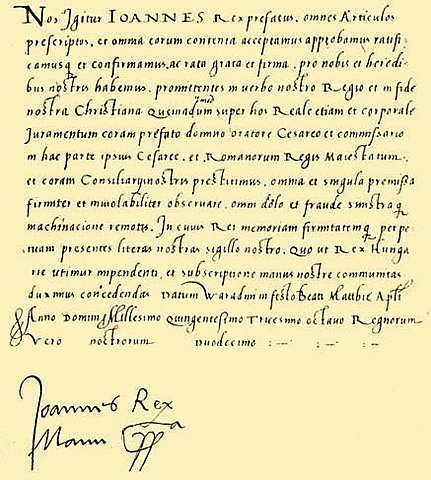 Nos Igitur IOANNES Rex prefatus, omnes Articulos
prescriptos, et omnia eorum contenta acceptamus approbamus ratifi-
camusq et confirmamus, ac rata grata et firma, pro nobis et heredi-
bus nostris habemus, promittentes in verbo nostro Regio et in fide
nostra Christiana Quemadmodum super hos Reale etiam et corporale
Juramentum coram prefato domino oratore Cesareo et commissario
in hac parte ipsius Cesaree, et Romanorum Regis Maiestatum,
et coram Consiliarijs nostris prestitimus, omnia et singula premissa
firmiter et inviolabiliter observare, omni dolo et fraude sinistra q
machinacione remotis, In cuius Rei memoriam firmitatemq perpe-
tuam presentes literas nostras sigillo nostro, Quo ut Rex Hunga
rie utimur inpendenti, et subscriptione manus nostre communitas
duximus concedendas Datum Waradini in festo Beati Matthie Apli
Anno Domini Millesimo Quingentesimo Tricesimo octavo Regnorum
Vero nostrorum Duodecimo :—: :—
Joannes Rex
Manu